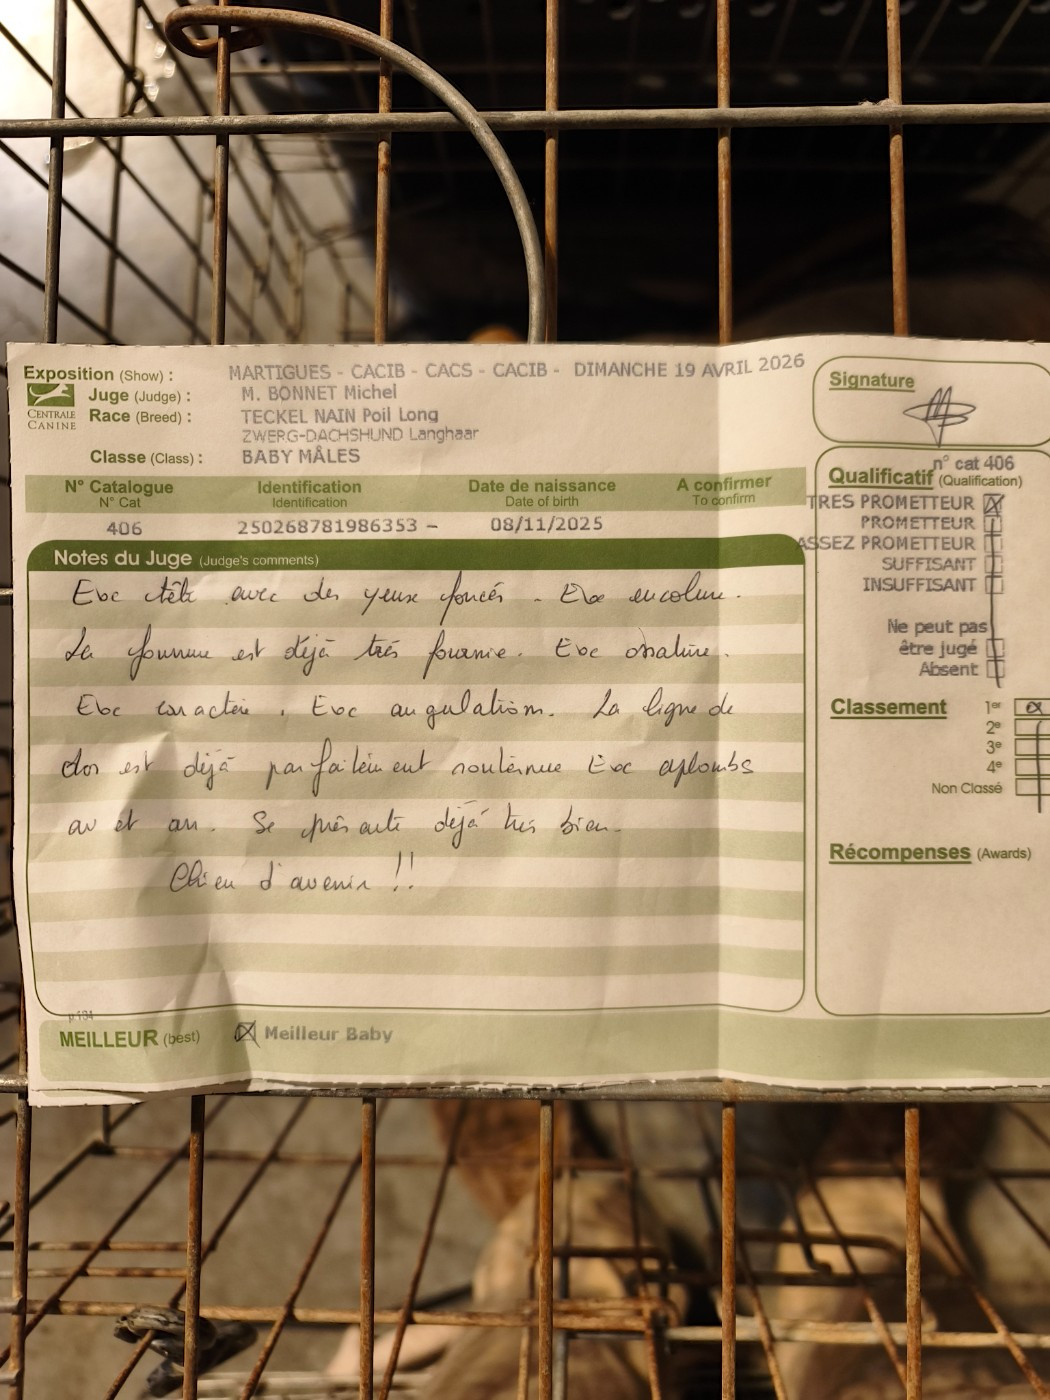 Exposition (Show) : MARTIGUES - CACIB - CACS - CACIB - DIMANCHE 19 AVRIL 2026
CENTRALE CANINE
Juge (Judge) : M. BONNET Michel
Race (Breed) : TECKEL NAIN Poil Long
ZWERG-DACHSHUND Langhaar
Classe (Class) : BABY MÂLES
N° Catalogue Identification Date de naissance A confirmer
N° Cat Identification Date of birth To confirm
406 250268781986353 - 08/11/2025
Notes du Juge (Judge's comments)
Exc tête avec des yeux foncés. Exc encolure.
La fourrure est déjà très fournie. Exc ossature.
Exc caractère. Exc angulation. La ligne de
dos est déjà parfaitement soutenue Exc aplombs
av et arr. Se présente déjà très bien.
Chien d'avenir !!
p.184
MEILLEUR (best) Meilleur Baby
Signature
n° cat 406
Qualificatif (Qualification)
TRES PROMETTEUR
PROMETTEUR
ASSEZ PROMETTEUR
SUFFISANT
INSUFFISANT
Ne peut pas
être jugé
Absent
Classement 1er
2e
3e
4e
Non Classé
Récompenses (Awards)